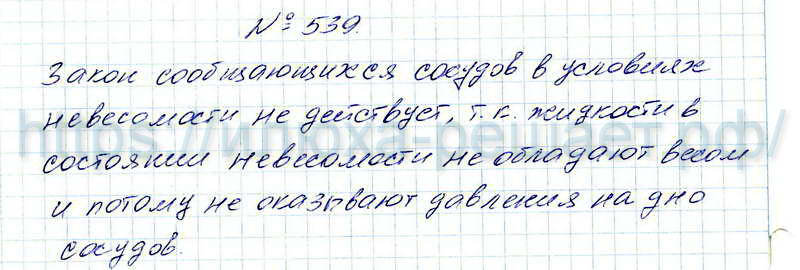 № 539.
Закон сообщающихся сосудов в условиях
невесомости не действует, т.к. жидкости в
https://илюха-решает.рф/
состоянии невесомости не обладают весом
и потому не оказывают давления на дно
сосудов.